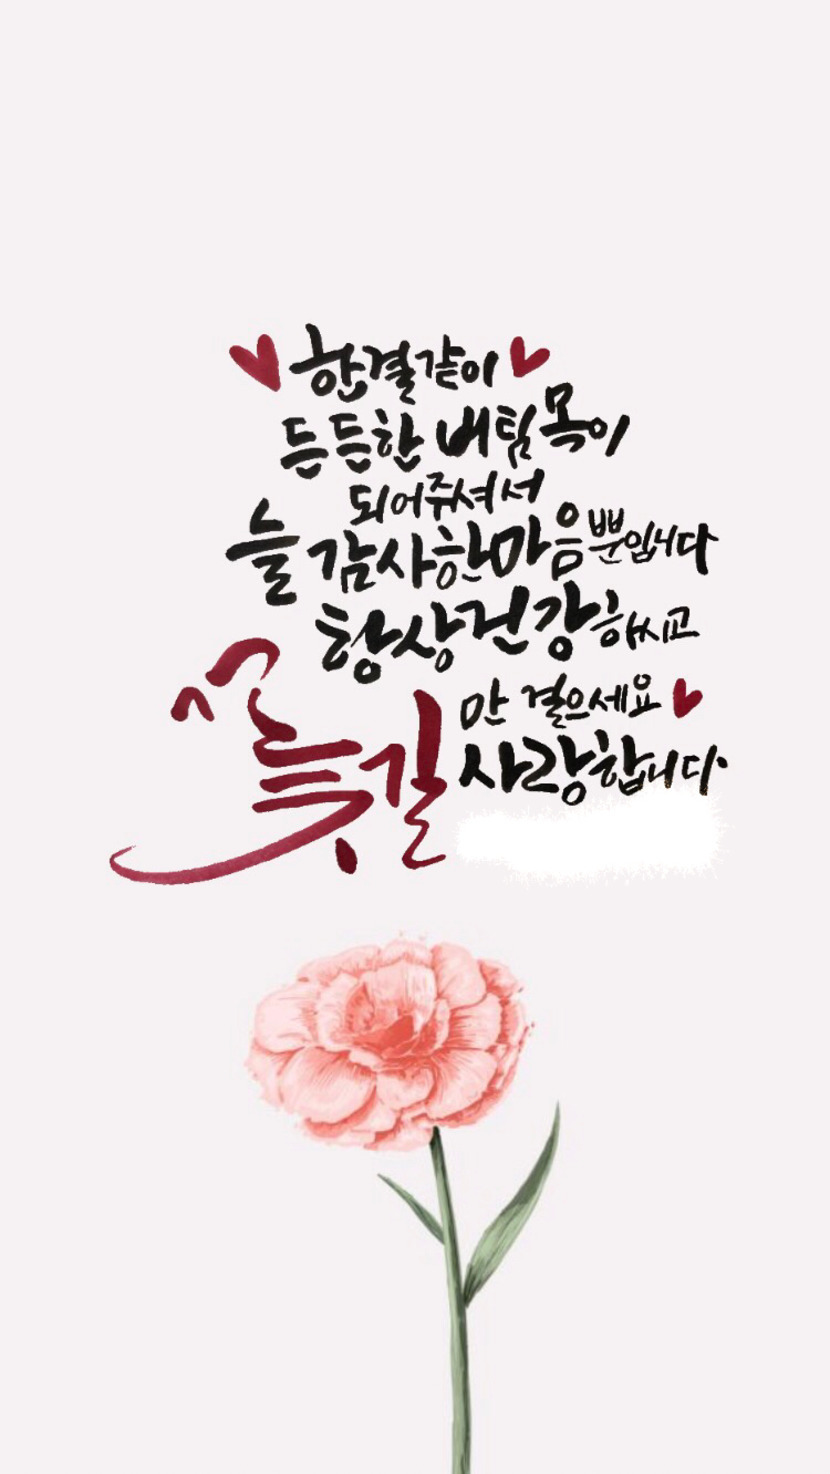 한결같이
든든한 버팀목이
되어주셔서
늘 감사한마음뿐입니다
항상건강하시고
꽃길만 걸으세요
사랑합니다